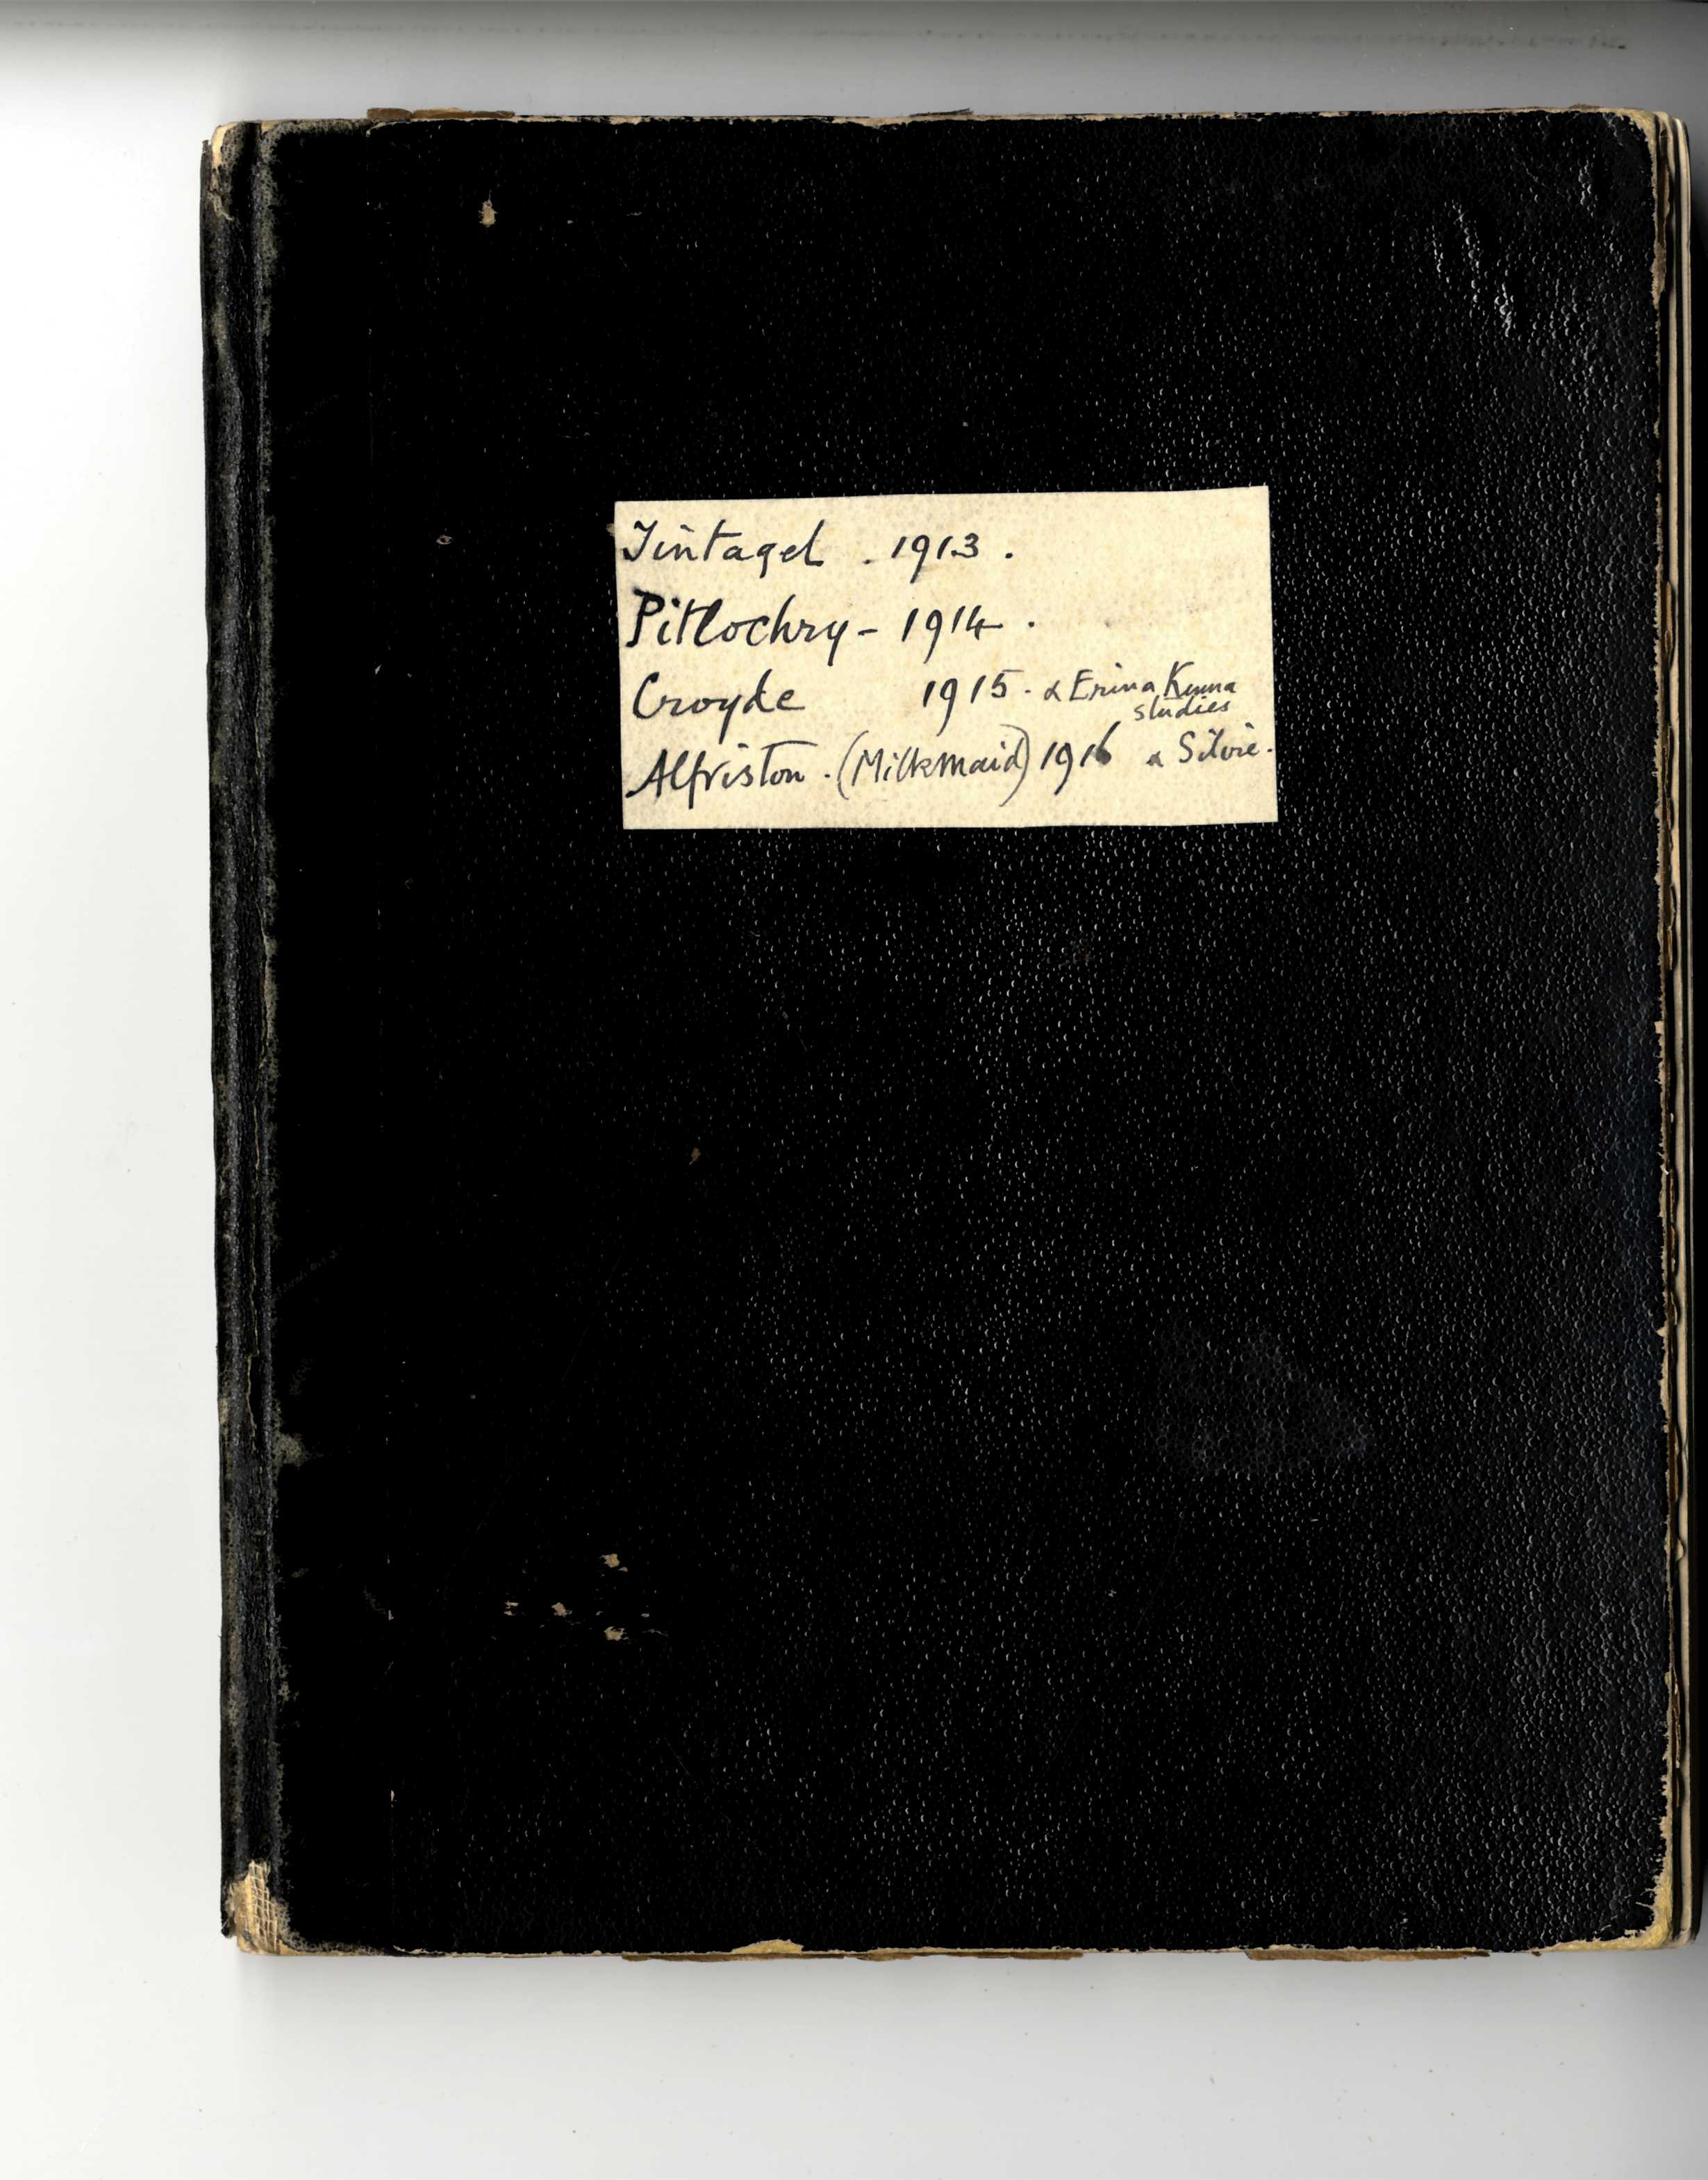 Tintagel . 1913 .
Pitlochry - 1914 .
Croyde 1915 . & Erina
studies
Alfriston . (Milkmaid) 1916 & Silvie .